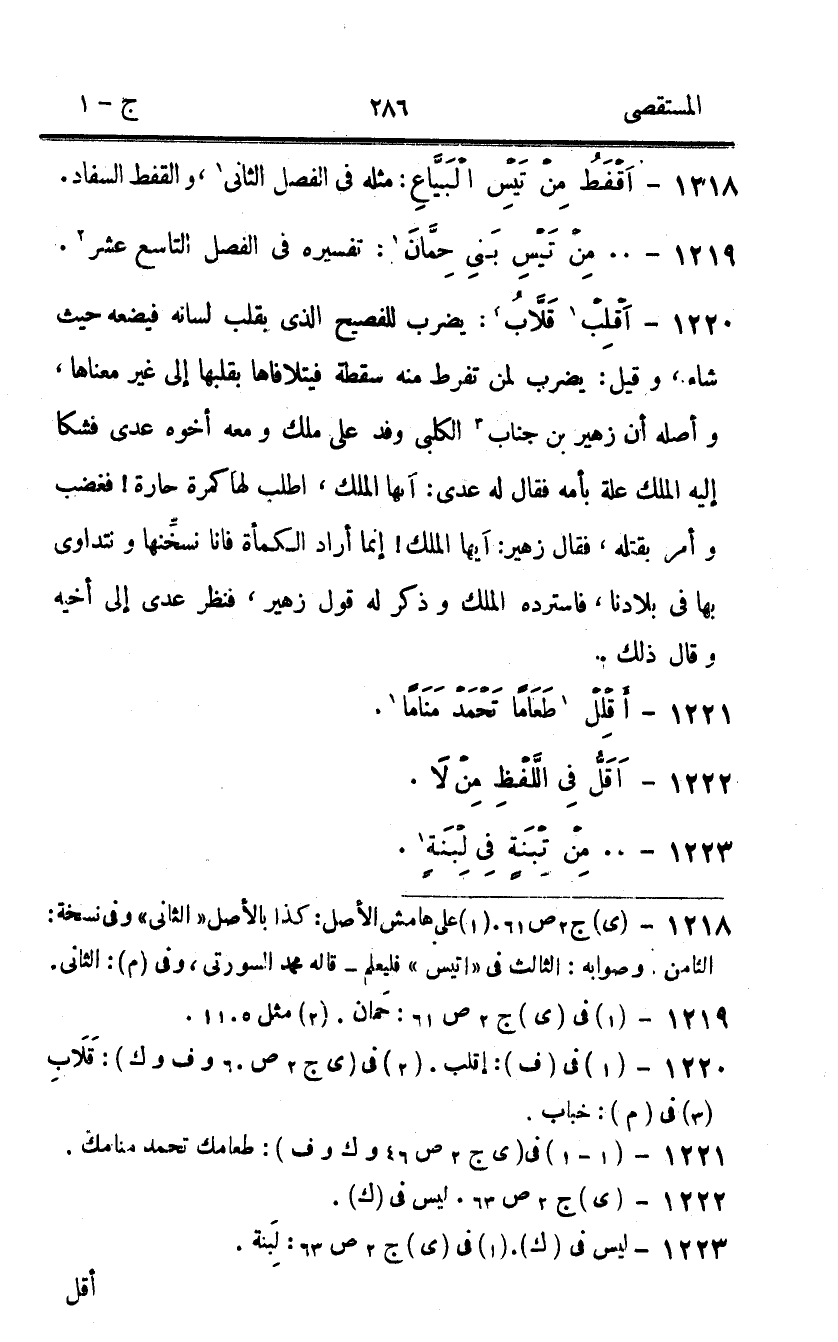 المستقصى ٢٨٦ ج – ١
١٣١٨ – اَقْفَطُ مِنْ تَيْسِ الْبَيَّاعِ: مثله فى الفصل الثانى١، و القفط السفاد.
١٢١٩ – ٠٠ مِنْ تَيْسِ بَنِي حِمَّانَ١: تفسيره فى الفصل التاسع عشر٢.
١٢٢٠ – اَقْلِبْ١ قَلَّابُ٢: يضرب للفصيح الذى يقلب لسانه فيضعه حيث
شاء، و قيل: يضرب لمن تفرط منه سقطة فيتلافاها بقلبها إلى غير معناها،
و أصله أن زهير بن جناب٣ الكلبى وفد على ملك و معه أخوه عدى فشكا
إليه الملك علة بأمه فقال له عدى: اَيها الملك، اطلب لها كمرة حارة! فغضب
و أمر بقتله، فقال زهير: اَيها الملك! إنما أراد الكمأة فانا نسخّنها و نتداوى
بها فى بلادنا، فاسترده الملك و ذكر له قول زهير، فنظر عدى إلى أخيه
و قال ذلك.
١٢٢١ – أَقْلِلْ ١طَعَامًا تَحْمَدْ مَنَامًا١.
١٢٢٢ – اَقَلُّ فِى اللَّفْظِ مِنْ لَا.
١٢٢٣ – ٠٠ مِنْ تِبْنَةٍ فِى لِبْنَةٍ١.
١٢١٨ – (ى) ج ٢ ص ٦١. (١) على هامش الأصل: كذا بالأصل «الثانى» وفى نسخة:
الثامن. وصوابه: الثالث فى «اتيس» فليعلم – قاله محمد السورتى، وفى (م): الثانى.
١٢١٩ – (١) فى (ى) ج ٢ ص ٦١: حَمان. (٢) مثل ١١٠٥.
١٢٢٠ – (١) فى (ف): إقلب. (٢) فى (ى ج ٢ ص ٦٠ و ف و ك): قَلَابِ
(٣) فى (م): خباب.
١٢٢١ – (١–١) فى (ى ج ٢ ص ٤٦ و ك و ف): طعامك تحمد منامك.
١٢٢٢ – (ى) ج ٢ ص ٦٣. ليس فى (ك).
١٢٢٣ – ليس فى (ك). (١) فى (ى) ج ٢ ص ٦٣: لَبِنة.
أقل